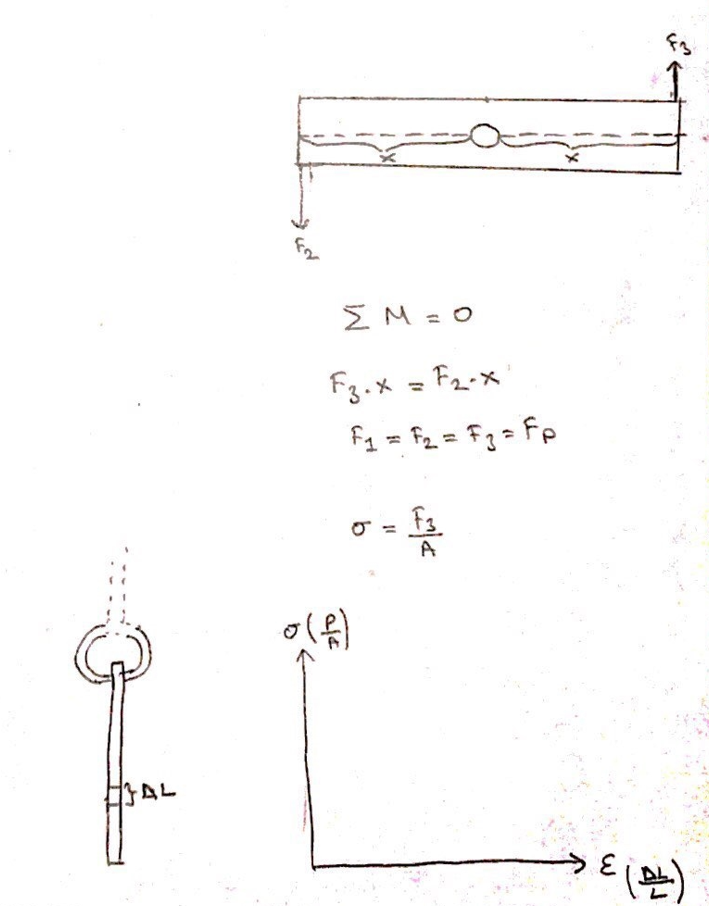 F3
x x
F2
Σ M = 0
F3.x = F2.x
F1 = F2 = F3 = Fp
σ = F3/A
σ(P/A)
}ΔL
ε (ΔL/L)